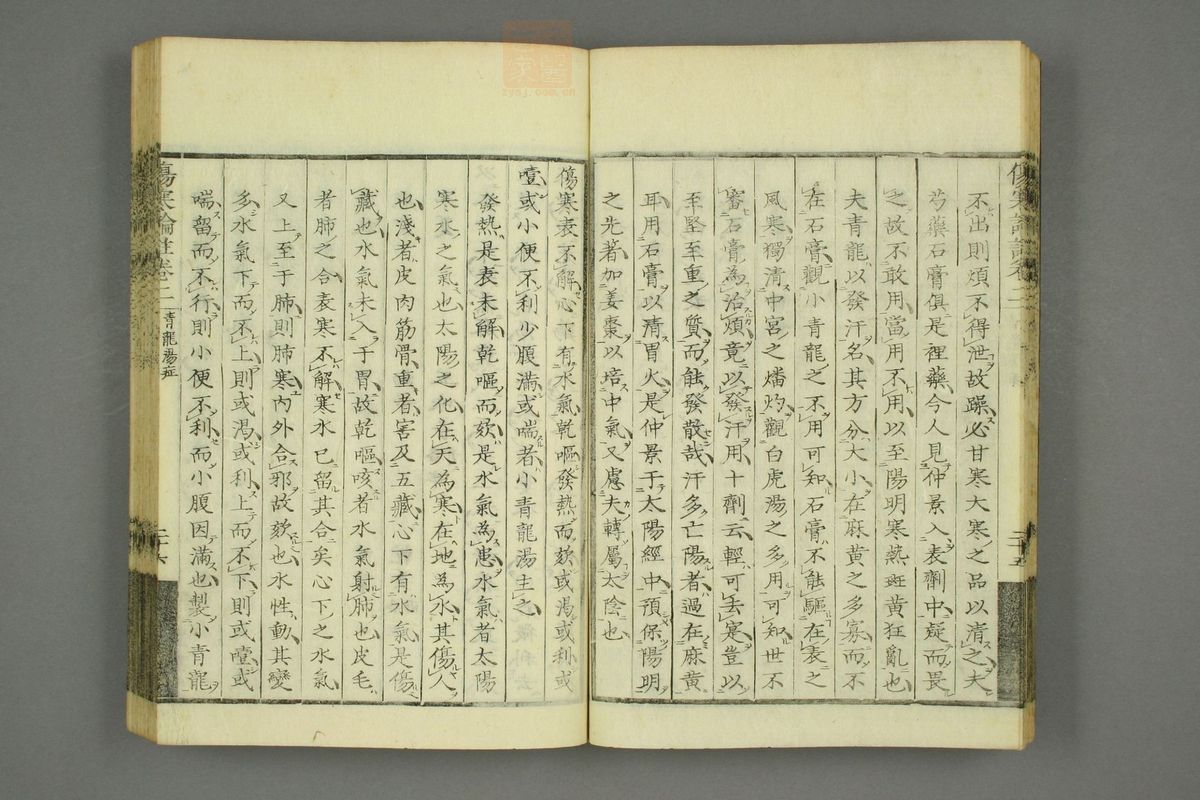 不出則煩不得泄故躁必甘寒大寒之品以清之夫
芍藥石膏俱是裡藥今人見仲景入表劑中疑而畏
之故不敢用當用不用以至陽明寒熱斑黃狂亂也
夫青龍以發汗名其方分大小在麻黃之多寡而不
在石膏觀小青龍之不用可知石膏不能驅在表之
風寒獨清中宮之燔灼觀白虎湯之多用可知世不
審石膏為治煩竟以發汗用十劑云輕可去寔豈以
至堅至重之質而能發散哉汗多亡陽者過在麻黃
耳用石膏以清胃火是仲景于太陽經中預保陽明
之先著加姜棗以培中氣又慮夫轉屬太陰也
傷寒表不解心下有水氣乾嘔發熱而欬或渴或利或
噎或小便不利少腹滿或喘者小青龍湯主之
發熱是表未解乾嘔而欬是水氣為患水氣者太陽
寒水之氣也太陽之化在天為寒在地為水其傷人
也淺者皮肉筋骨重者害及五藏心下有水氣是傷
藏也水氣未入于胃故乾嘔咳者水氣射肺也皮毛
者肺之合表寒不解寒水已留其合矣心下之水氣
又上至于肺則肺寒內外合邪故欬也水性動其變
多水氣下而不上則或渴或利上而不下則或噎或
喘留而不行則小便不利而小腹因滿也製小青龍
傷寒論註卷二
青龍湯症
二十六